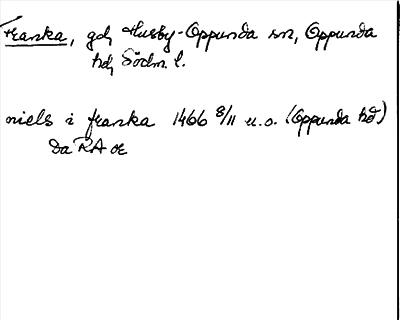 Franka, gd, Husby-Oppunda sn, Oppunda
hd, Södm. l.
niels i franka 1466 8/11 u.o. (Oppunda hd)
Da RA oe